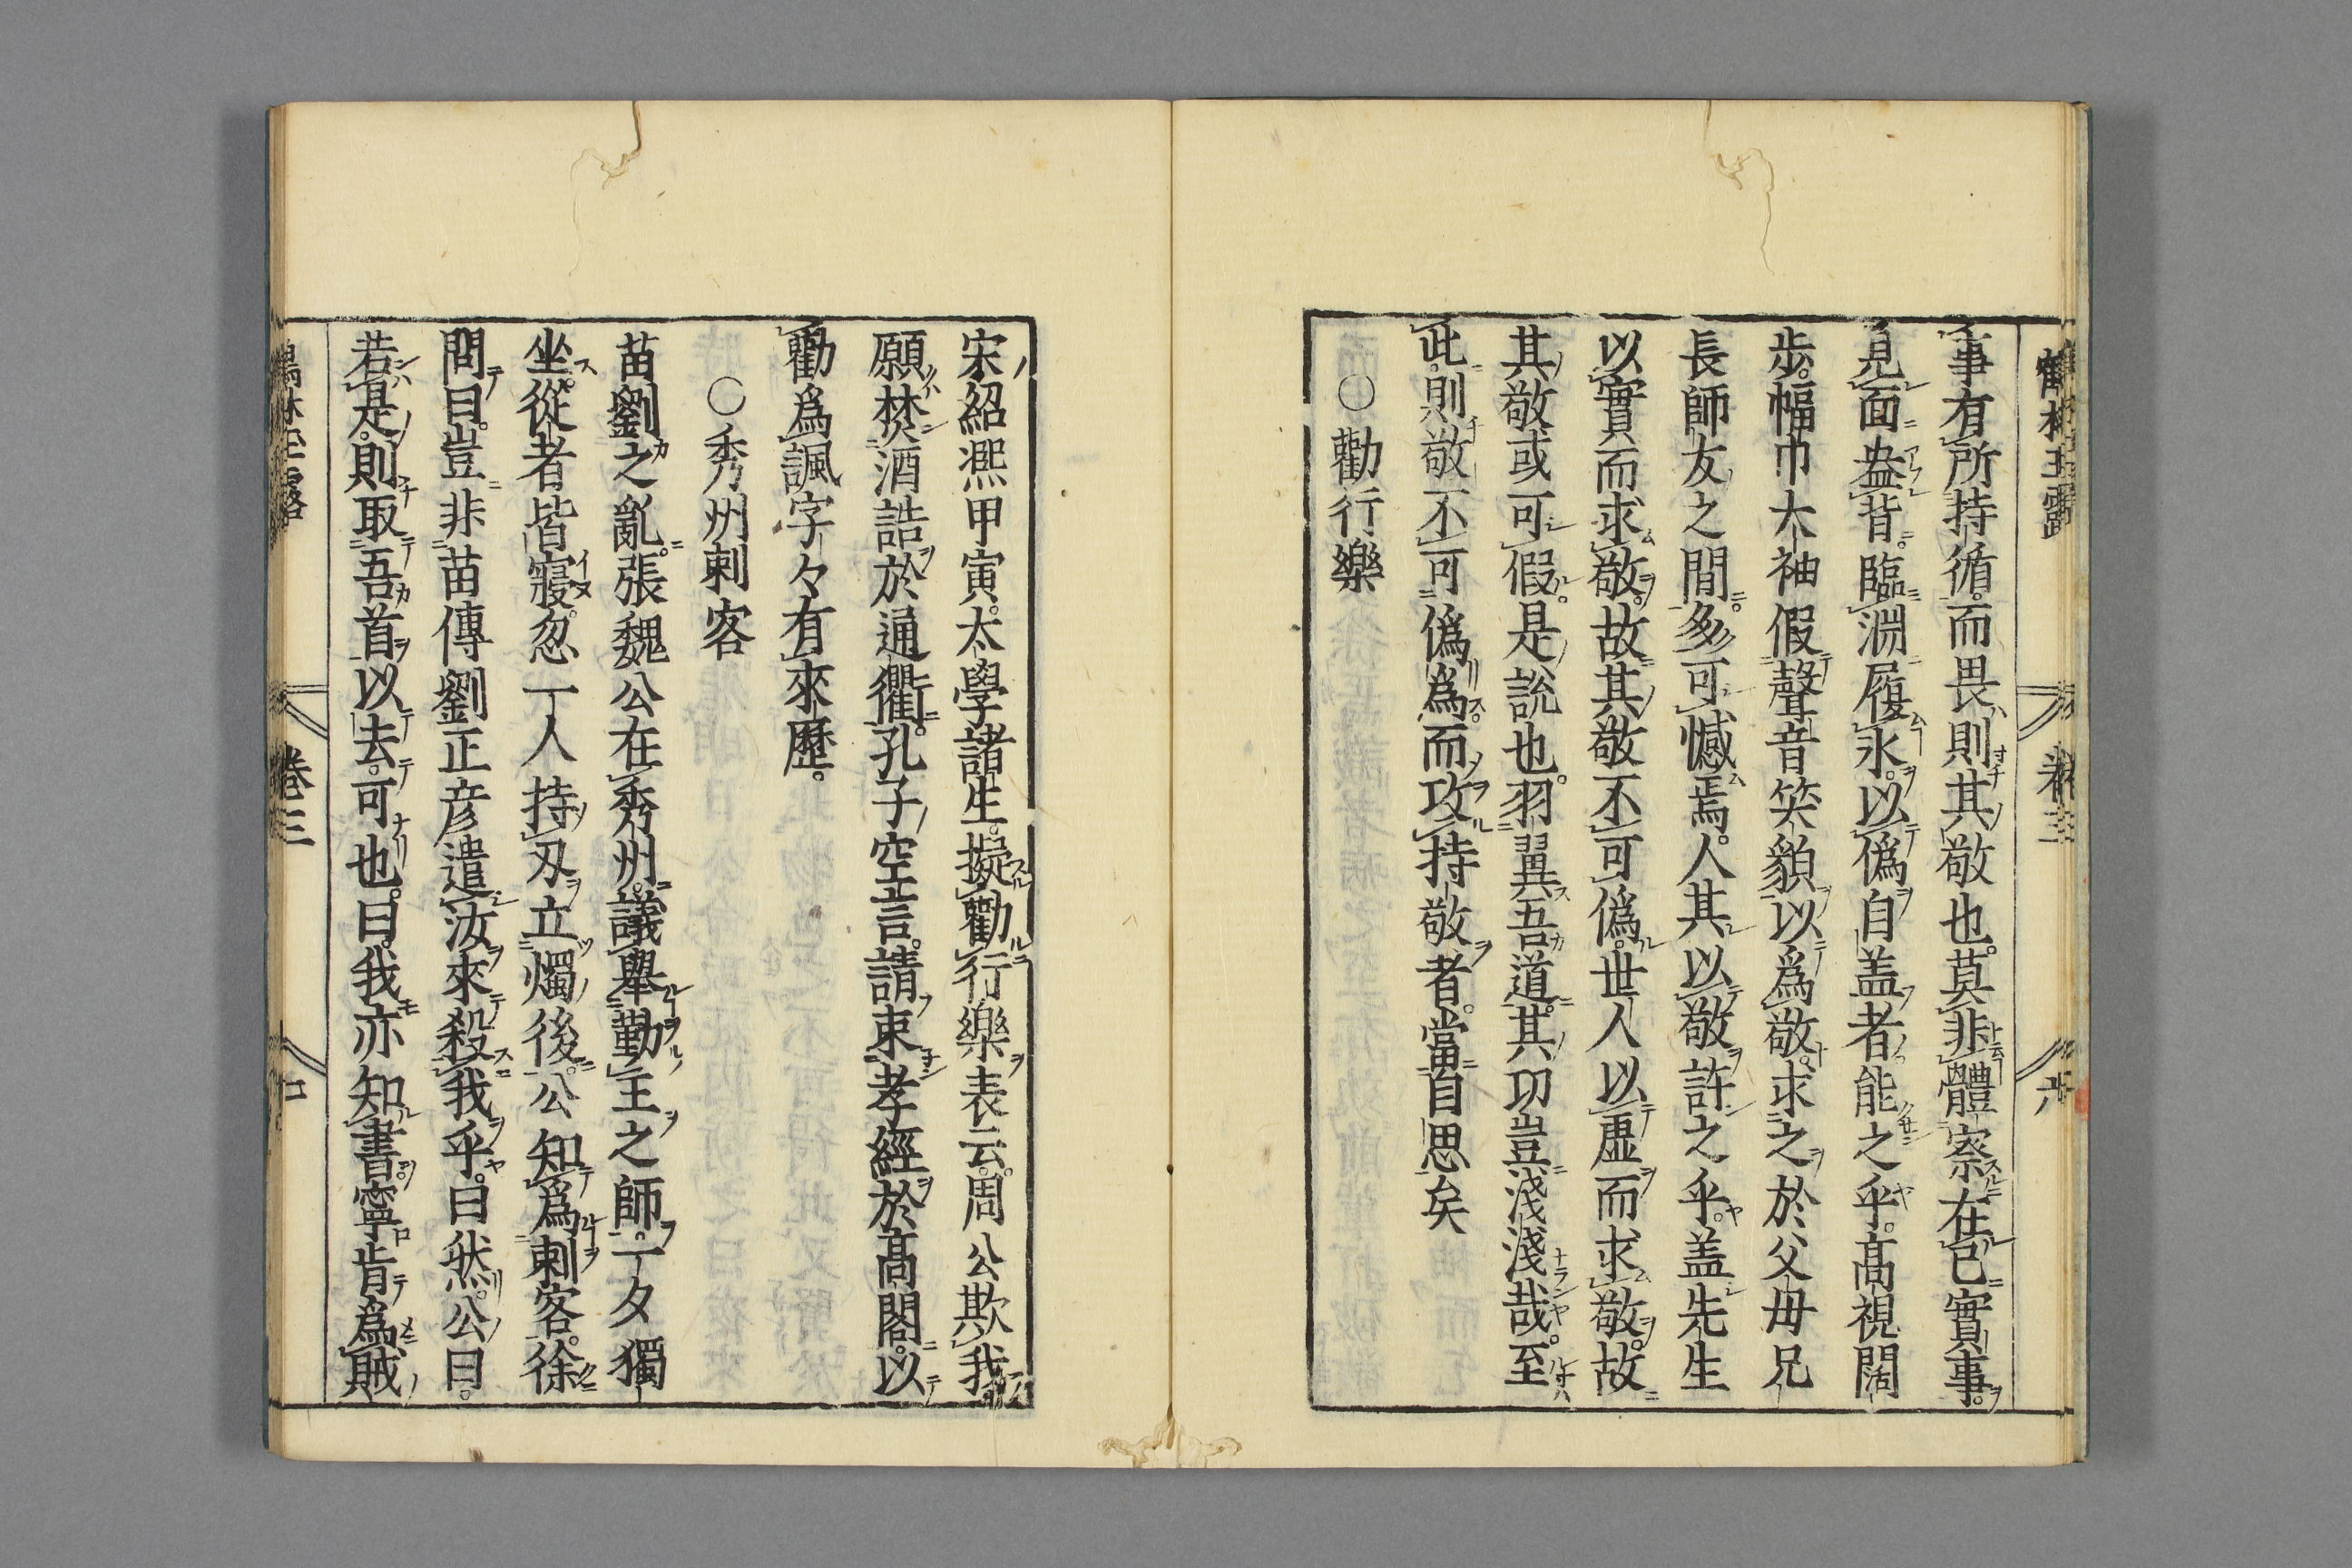 鶴林玉露 卷三
事有所持循。而畏則其敬也。莫非體察在己實事。
見面盎背。臨淵履氷。以偽自盖者。能之乎。高視闊
步。幅巾大袖假聲音笑貌以為敬。求之於父母兄
長師友之間。多可憾焉。人其以敬許之乎。盖先生
以實而求敬。故其敬不可偽。世人以虛而求敬。故
其敬或可假。是說也。羽翼吾道。其功豈淺淺哉。至
此。則敬不可偽為。而攻持敬者。當自思矣
○勸行樂
宋紹熈甲寅。太學諸生。擬勸行樂表云。周公欺我
願焚酒誥於通衢。孔子空言。請束孝經於高閣。以
勸為諷字々有來歷。
○秀州刺客
苗劉之亂。張魏公在秀州。議舉勤王之師。一夕獨
坐。從者皆寢。忽一人持刄立燭後。公知為刺客。徐
問曰。豈非苗傅劉正彦遣汝來殺我乎。曰然。公曰。
若是。則取吾首以去。可也。曰。我亦知書。寧肯為賊
鶴林玉露 卷三